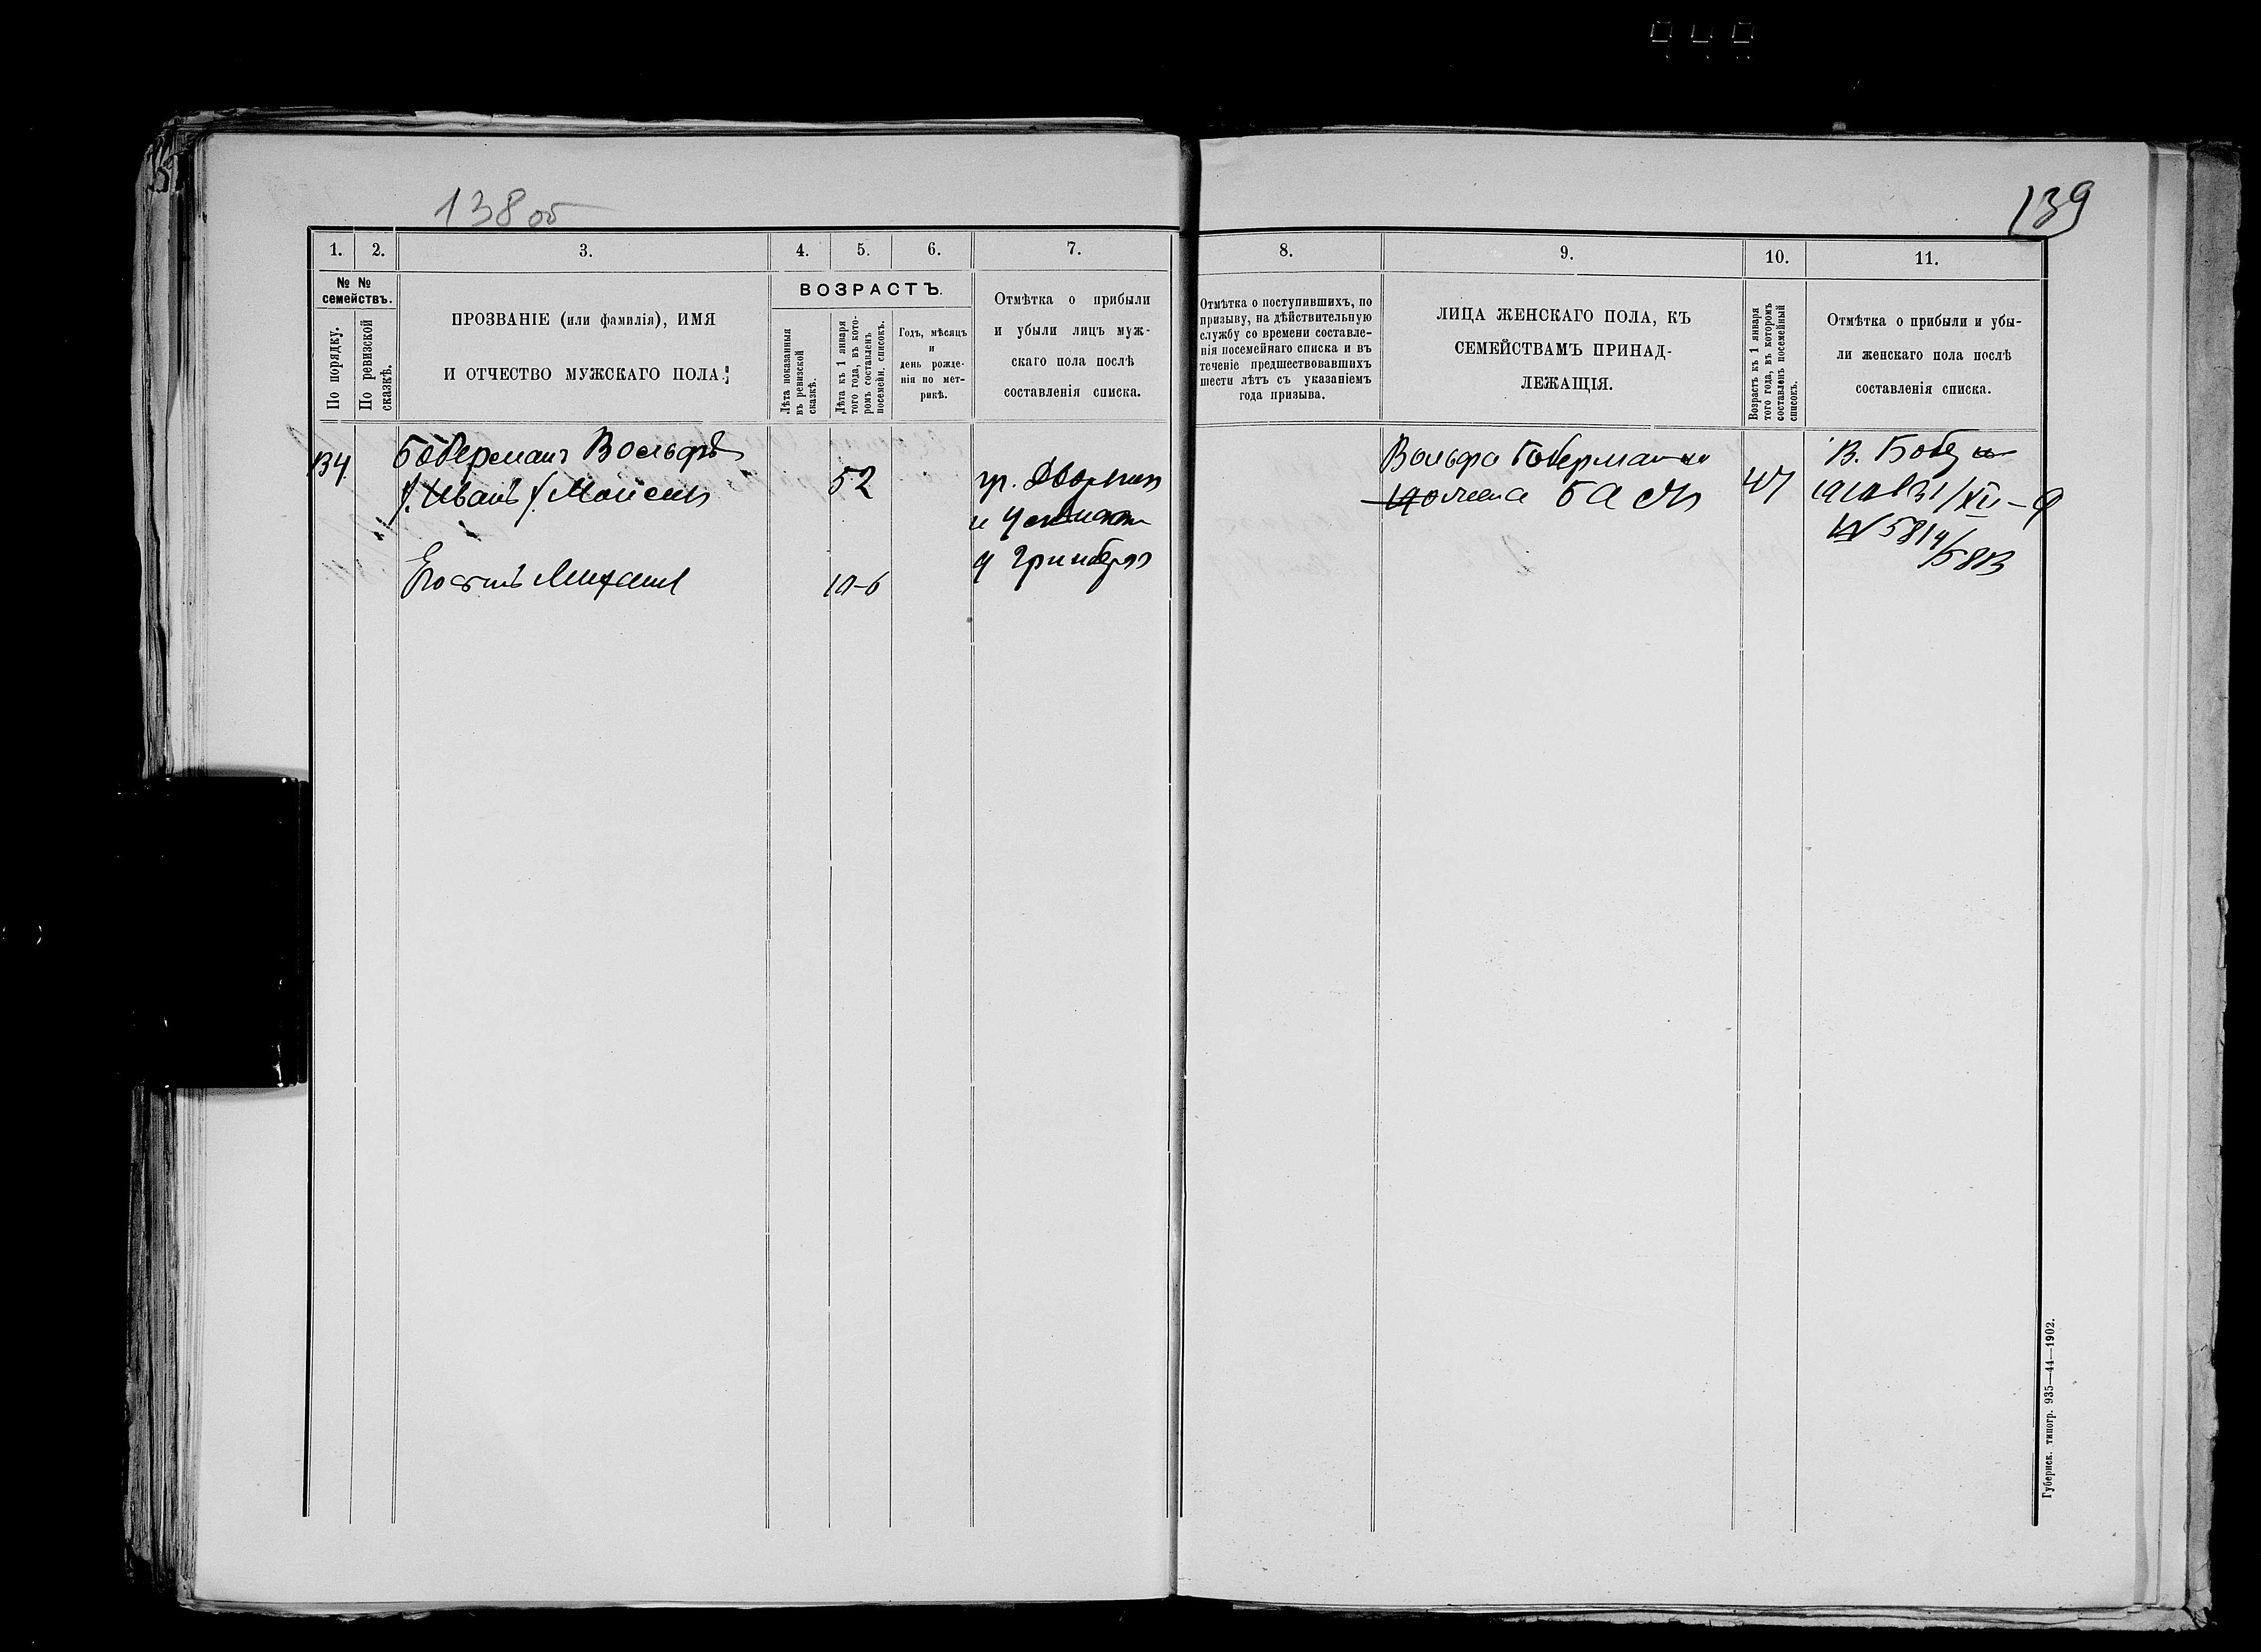 138 об
139
1. 2. 3. 4. 5. 6. 7.
№ №
семействъ.
По порядку.
По ревизской
сказкѣ.
ПРОЗВАНІЕ (или фамилія), ИМЯ
И ОТЧЕСТВО МУЖСКАГО ПОЛА.
ВОЗРАСТЪ.
Лѣта показанныя
въ ревизской
сказкѣ.
Лѣта къ 1 января
того года, въ кото-
ромъ составленъ
посемейн. списокъ.
Годъ, мѣсяцъ
и
день рожде-
нія по мет-
рикѣ.
Отмѣтка о прибыли
и убыли лицъ муж-
скаго пола послѣ
составленія списка.
8. 9. 10. 11.
Отмѣтка о поступившихъ, по
призыву, на дѣйствительную
службу со времени составле-
нія посемейнаго списка и въ
теченіе предшествовавшихъ
шести лѣтъ съ указаніемъ
года призыва.
ЛИЦА ЖЕНСКАГО ПОЛА, КЪ
СЕМЕЙСТВАМЪ ПРИНАД-
ЛЕЖАЩІЯ.
Возрастъ къ 1 января
того года, въ которомъ
составленъ посемейный
списокъ.
Отмѣтка о прибыли и убы-
ли женскаго пола послѣ
составленія списка.
134
Боберманъ Вольфъ
Иванъ Моисеев
52
гр. Дворкин
и
и Гринберг
Его сынъ Михаил
10-6
Вольфа Боберманъ
жена Бася
47
В.
№ 5814/
Губернск. типогр. 935—44—1902.